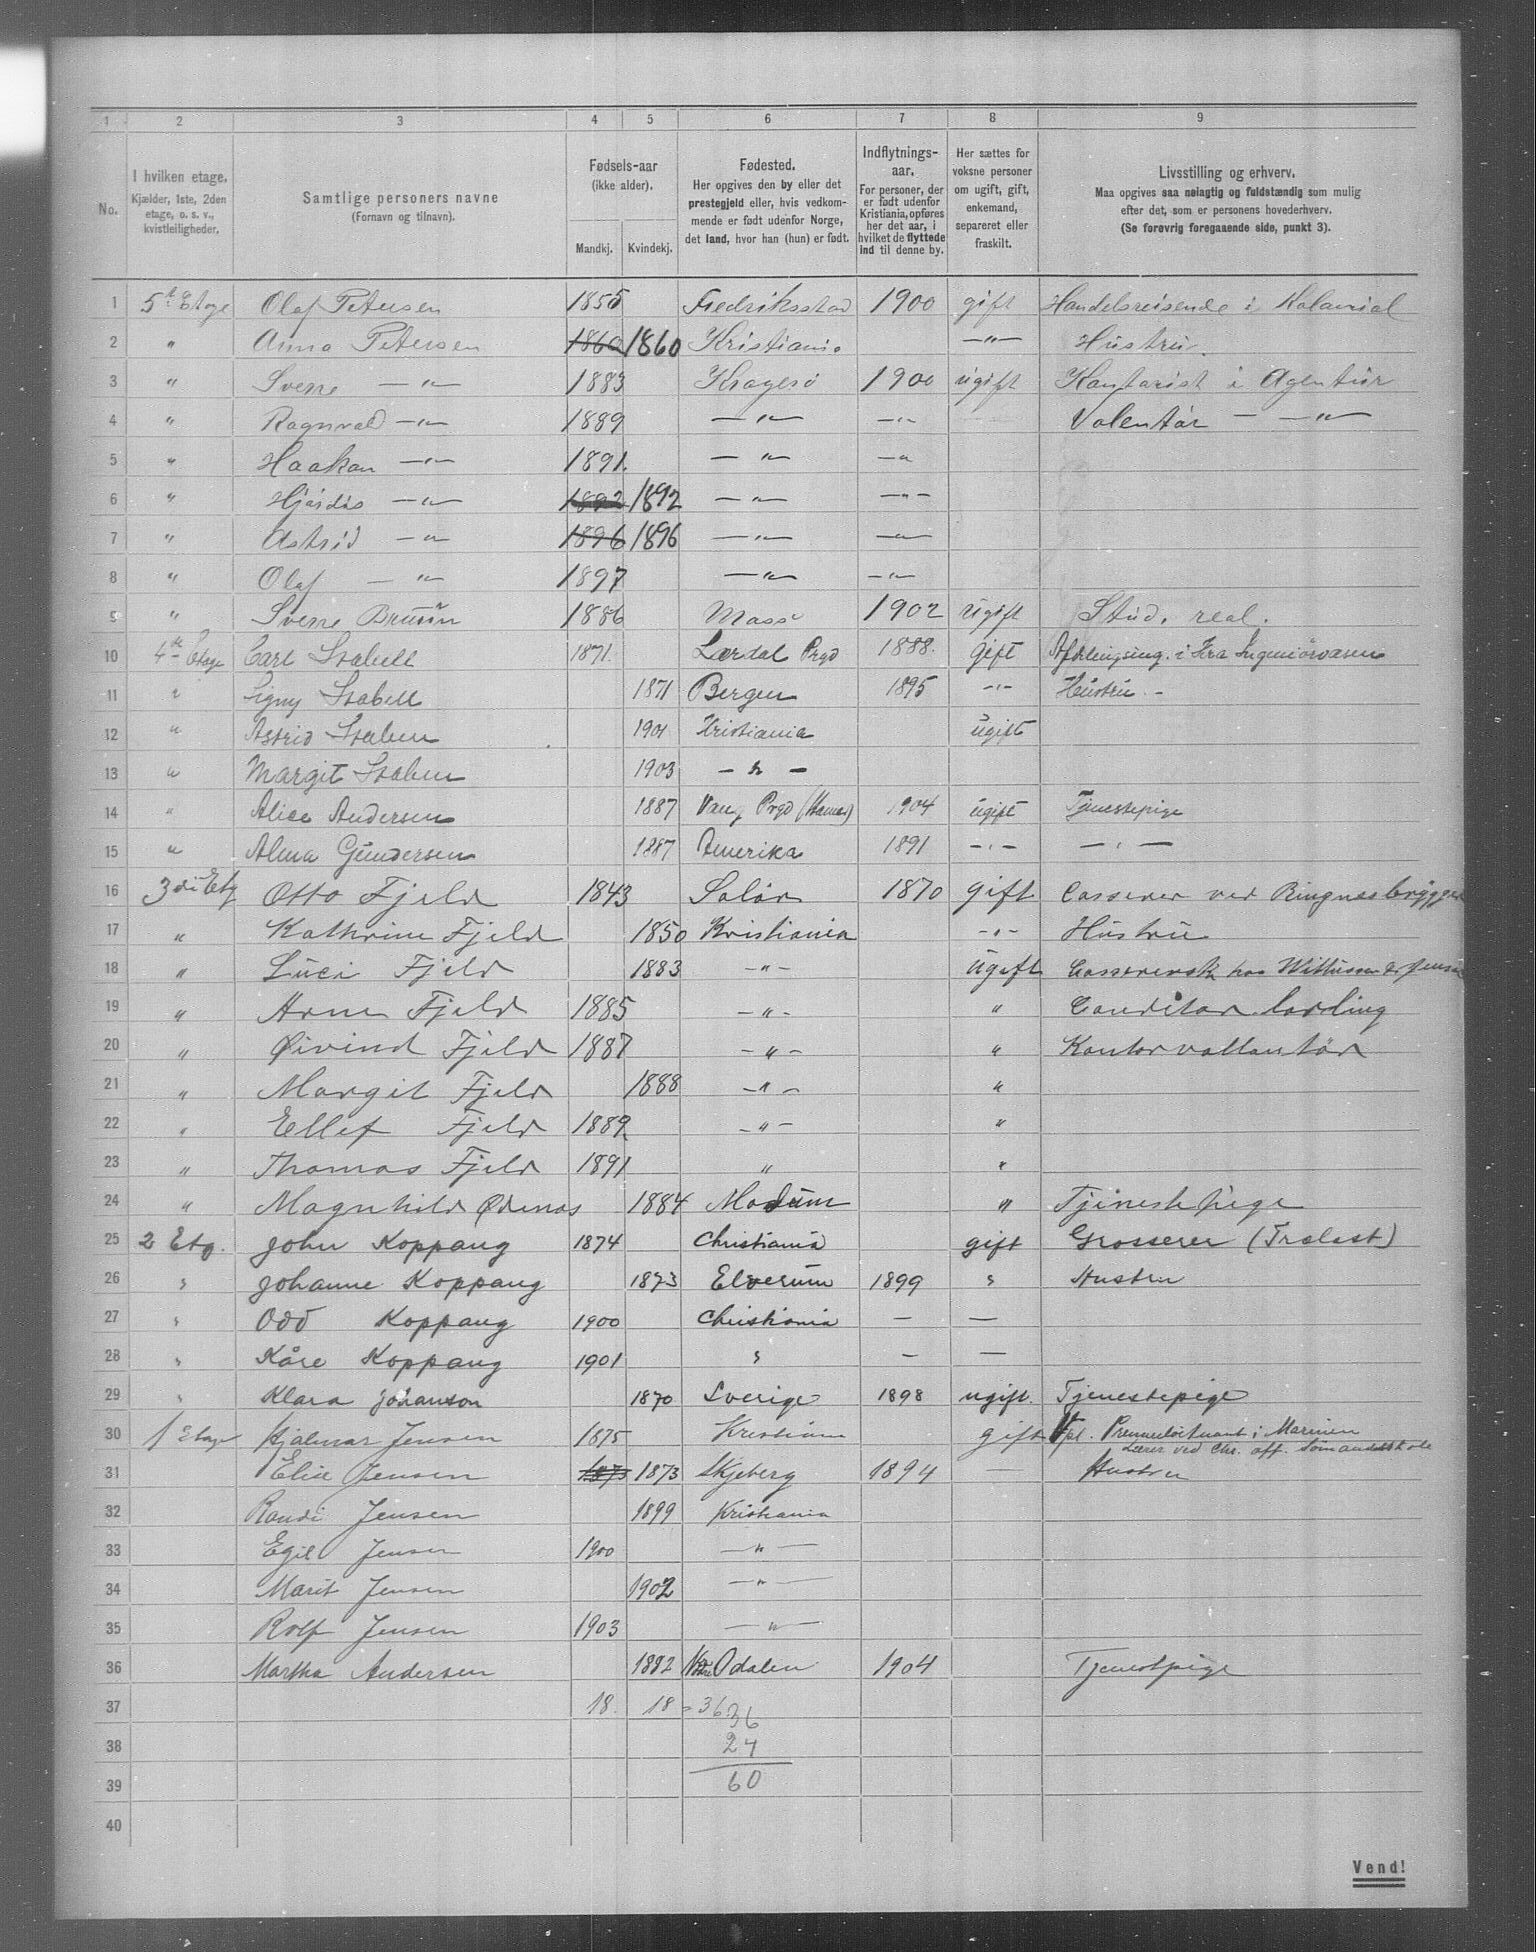 1 2 3 4 5 6 7 8 9
No.
I hvilken etage.
Kjælder, 1ste, 2den
etage, o. s. v.,
kvistleiligheder.
Samtlige personers navne
(Fornavn og tilnavn).
Fødsels-aar
(ikke alder).
Mandkj. Kvindekj.
Fødested.
Her opgives den by eller det
prestegjeld eller, hvis vedkom-
mende er født udenfor Norge,
det land, hvor han (hun) er født.
Indflytnings-
aar.
For personer, der
er født udenfor
Kristiania, opføres
her det aar, i
hvilket de flyttede
ind til denne by.
Her sættes for
voksne personer
om ugift, gift,
enkemand,
separeret eller
fraskilt.
Livsstilling og erhverv.
Maa opgives saa nøiagtig og fuldstændig som mulig
efter det, som er personens hovederhverv.
(Se forøvrig foregaaende side, punkt 3).
1 5te Etage Olaf Petersen 1855 Fredriksstad 1900 gift Handelsreisende i Kolonial
2 " Anna Petersen 1860 1860 Kristiania —"— Hustru.
3 " Sverre —"— 1883 Kragerø 1900 ugift Kontorist i Agentur
4 " Ragnvald —"— 1889 —"— —"— Volentør — —"—
5 " Haakon —"— 1891. —"— —"
6 " Hjørdis —"— 1892 1892 —"— —"—
7 " Astrid —"— 1896 1896 —"— —"—
8 " Olaf —"— 1897 —"— —"—
9 " Sverre Bruun 1886 Moss 1902 ugift Stud. real.
10 4de Etage Carl Isabell 1871. Lærdal Prgd 1888. gift i Kra Ingeniørvæsen
11 " Signy Isabell 1871 Bergen 1895 —"— Hustru –
12 " Astrid 1901 Kristiania ugift
13 " Margit 1903 — " —
14 " Alice Andersen 1887 Vang Prgd (Hamar) 1904 ugift Tjenestepige
15 " Alma Gundersen 1887 Amerika 1891 —"— —"—
16 3die Etg Otto Fjeld 1843 Solør 1870 gift Casserer ved Ringnes brygge
17 " Kathrine Fjeld 1850 Kristiania -"- Hustru
18 " Luci Fjeld 1883 -"- ugift hos
19 " Arne Fjeld 1885 -"- " Conditor lærling
20 " Øivind Fjeld 1887 -"- " Kontor vollantør
21 " Margit Fjeld 1888 -"- "
22 " Ellef Fjeld 1889 -"- "
23 " Thomas Fjeld 1891 " "
24 " Magnhild Ødenes 1884 Modum " Tjenestepige
25 2 Etg. John Koppang 1874 Christiania gift Grosserer (Trælast)
26 " Johanne Koppang 1873 Elverum 1899 " Hustru
27 " Odd Koppang 1900 Christiania — —
28 " Kåre Koppang 1901 " — —
29 " Klara Johanson 1870 Sverige 1898 ugift. Tjenestepige
30 1 Etage Hjalmar Jensen 1875 Kristiania gift Premierløitnant i Marinen
Lærer ved Chr. off. Sømandsskole
31 Elise Jensen 1873 1873 Skjeberg 1894 — Hustru
32 Randi Jensen 1899 Kristiania
33 Egil Jensen 1900 —"—
34 Marit Jensen 1902 —"—
35 Rolf Jensen 1903 —"—
36 Martha Andersen 1882 Odalen 1904 Tjenestpige
37 18. 18 = 36.
36
38 24
39 60
40
Vend!